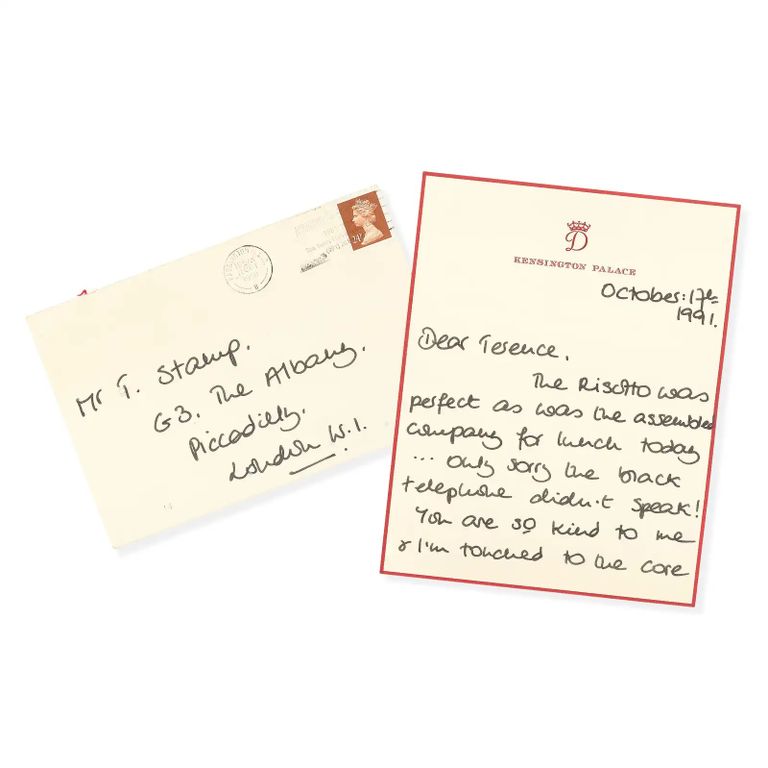 24P
Mr T. Stamp.
G3. The Albany.
Piccadilly.
London W.1.
D
KENSINGTON PALACE
October: 17th
1991.
Dear Terence.
The Risotto was
perfect as was the assembled
company for lunch today
... only sorry the black
telephone didn't speak!
You are so kind to me
& I'm touched to the core